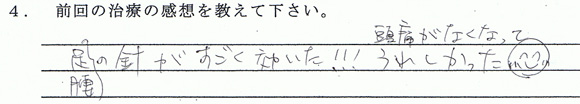 4． 前回の治療の感想を教えて下さい。
頭痛がなくなって
足の針がすごく効いた!!! うれしかった
腰